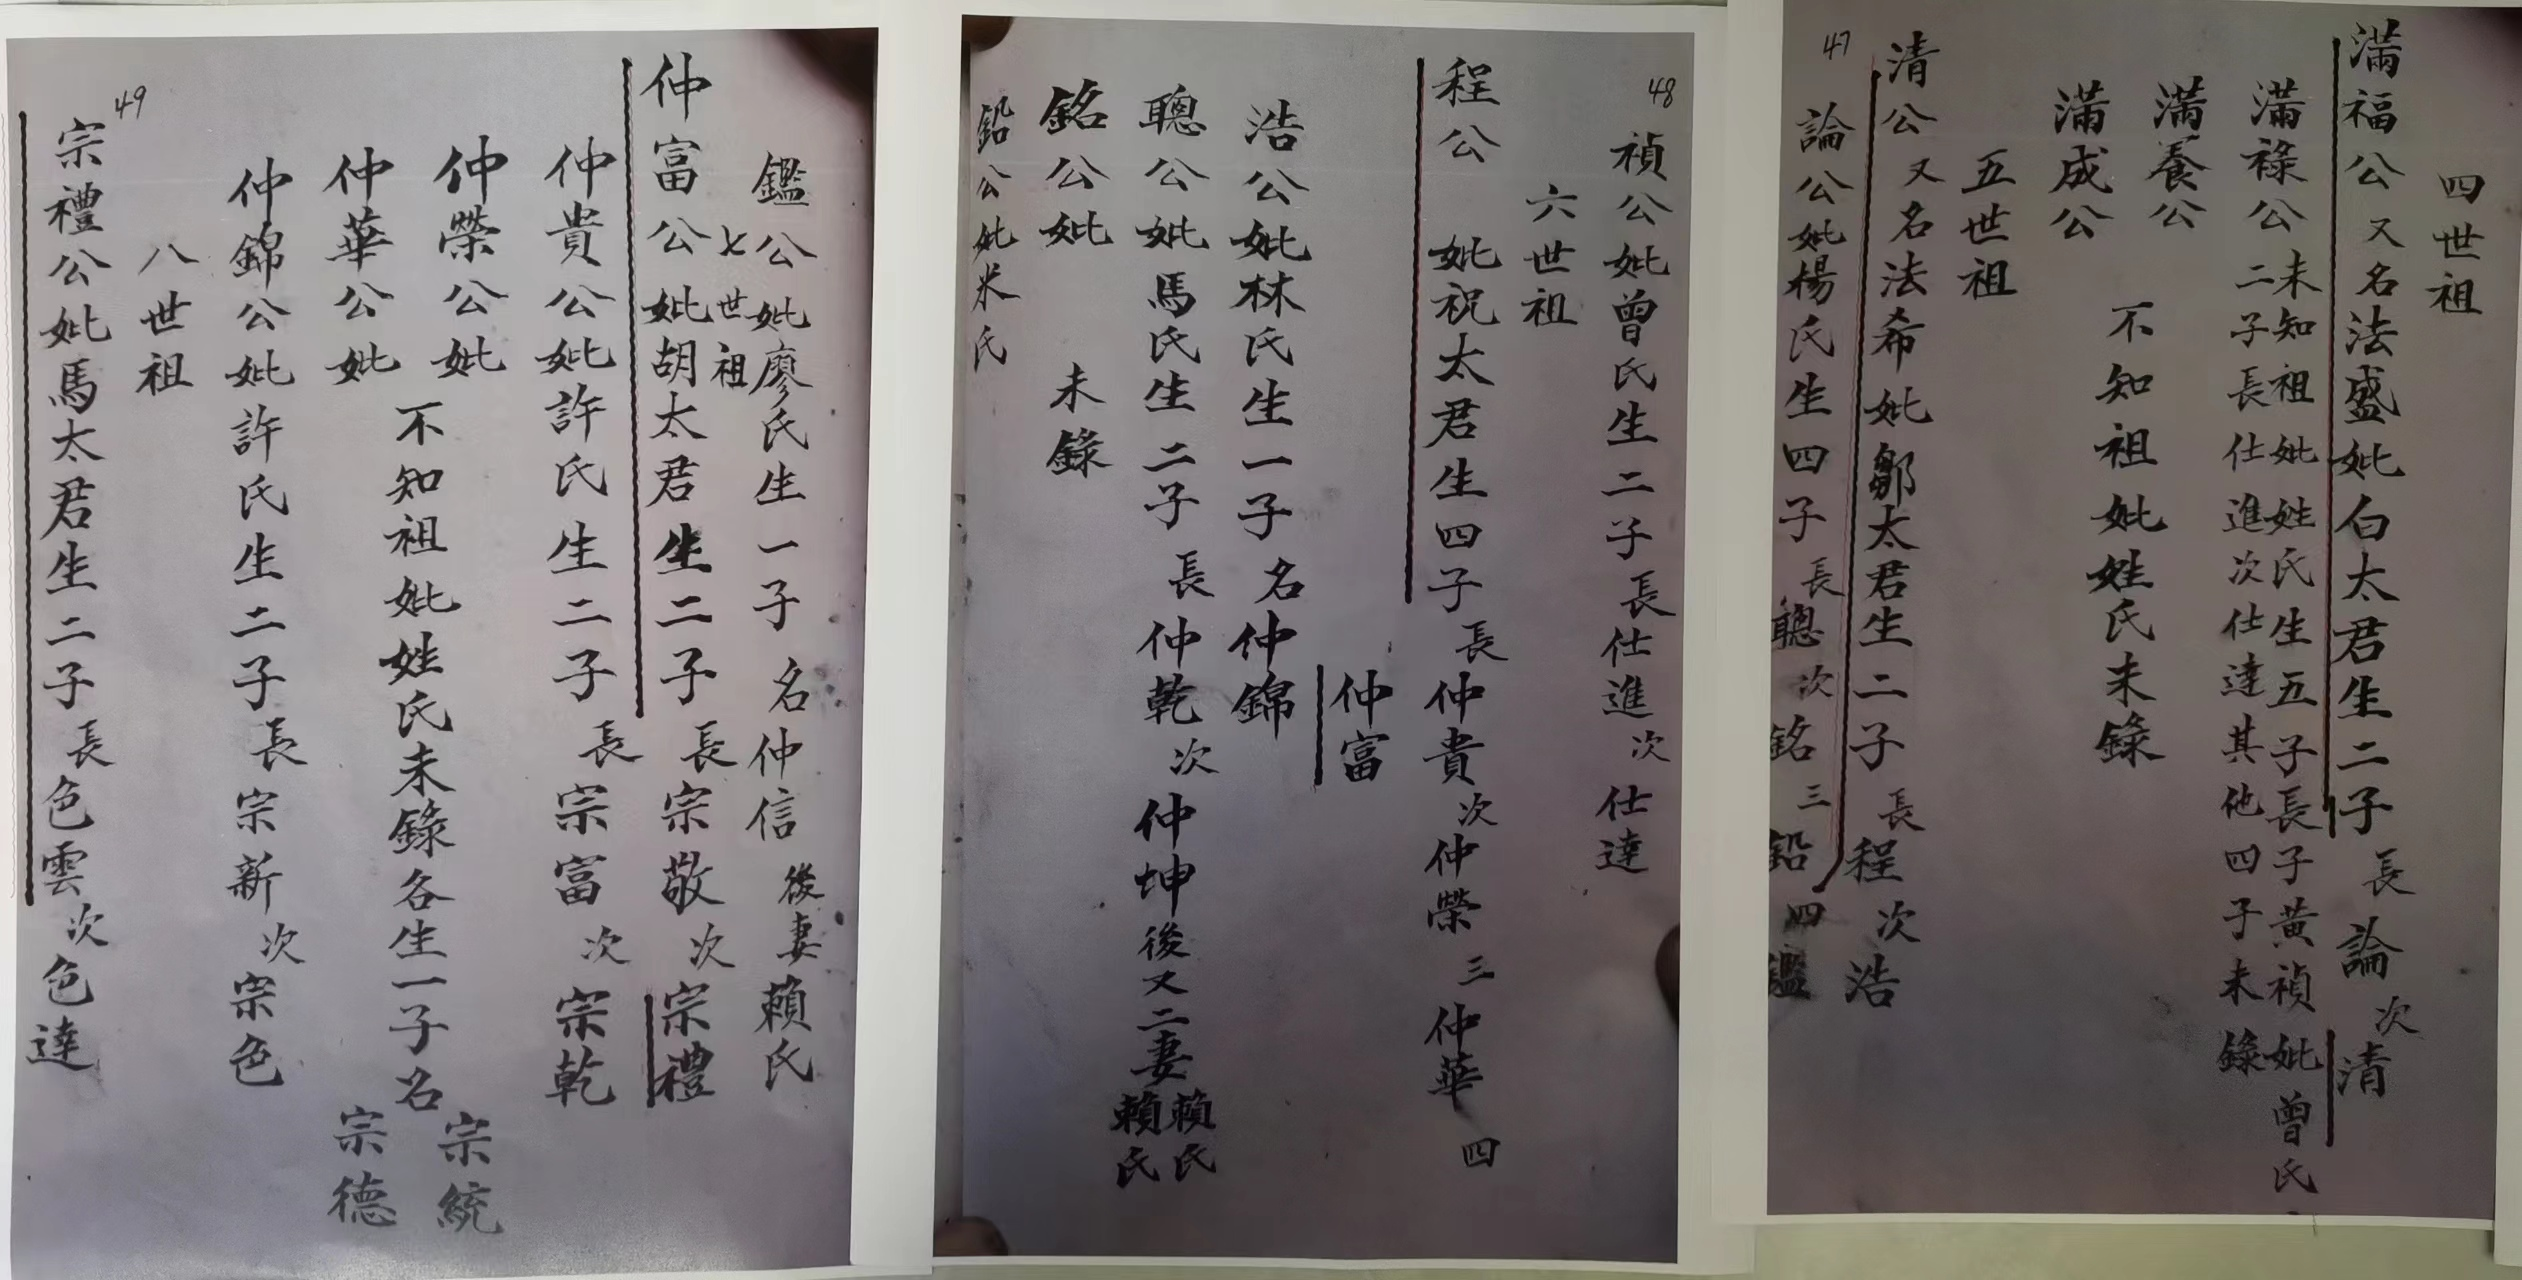 四世祖
滿福公又名法盛妣白太君生二子長論次清
滿祿公未知祖妣姓氏生五子長子黃禎妣曾氏
二子長仕進次仕達其他四子未錄
滿養公
不知祖妣姓氏未錄
滿成公
五世祖
清公又名法希妣鄒太君生二子長程次浩
47
論公妣楊氏生四子長聰次銘三鉛四鑑
48
禎公妣曾氏生二子長仕進次仕達
六世祖
程公 妣祝太君生四子長仲貴次仲榮三仲華四
仲富
浩公妣林氏生一子名仲錦
聰公妣馬氏生二子長仲乾次仲坤後又二妻賴氏賴氏
銘公妣 未錄
鉛公妣米氏
鑑公妣廖氏生一子名仲信後妻賴氏
七世祖
仲富公妣胡太君生二子長宗敬次宗禮
仲貴公妣許氏生二子長宗富次宗乾
仲榮公妣
不知祖妣姓氏未錄各生一子名
宗統
仲華公妣
宗德
仲錦公妣許氏生二子長宗新次宗色
八世祖
49
宗禮公妣馬太君生二子長色雲次色達